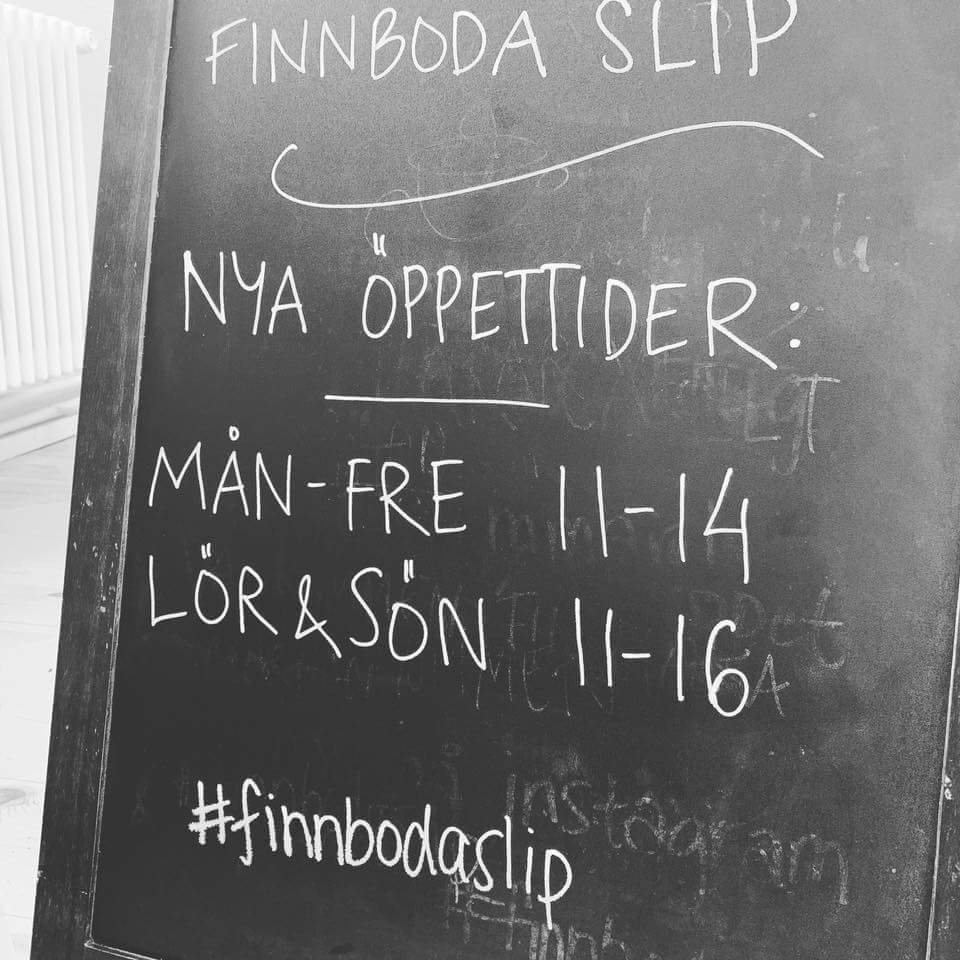 FINNBODA SLIP
NYA ÖPPETTIDER:
MÅN-FRE 11-14
LÖR & SÖN 11-16
#finnbodaslip
instagram